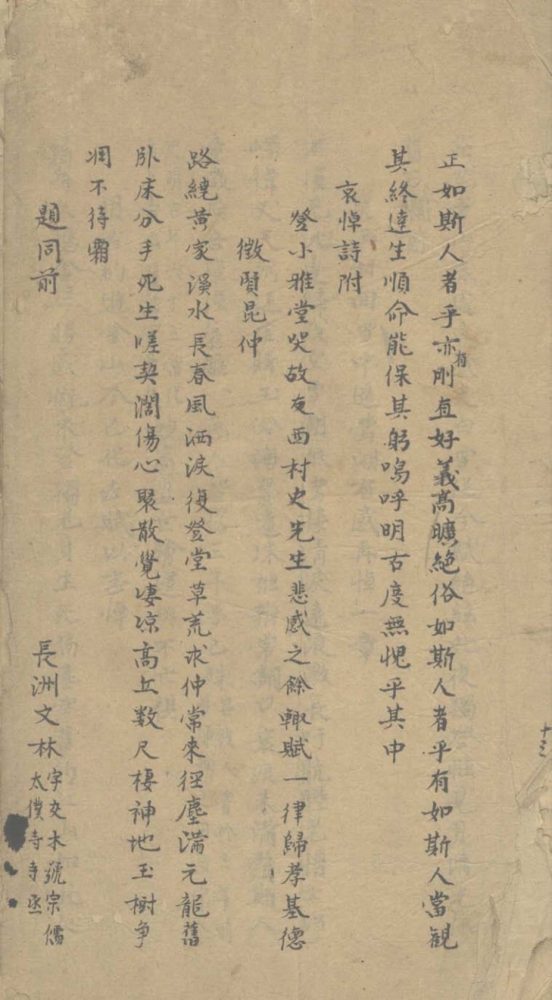 正如斯人者乎亦有剛直好義高曠絕俗如斯人者乎有如斯人當観
其終達生順命能保其躬嗚呼明古度無愧乎其中
哀悼詩附
登小雅堂哭故友西村史先生悲感之餘輙賦一律歸孝基德
徵賢昆仲
路繞黃家溪水長春風洒淚復登堂草荒求仲常來徑塵滿元龍舊
卧床分手死生嗟契濶傷心聚散覺凄凉高丘数尺棲神地玉樹争
凋不待霜
題同前
長洲文林字交木號宗儒
太僕寺寺丞
十三